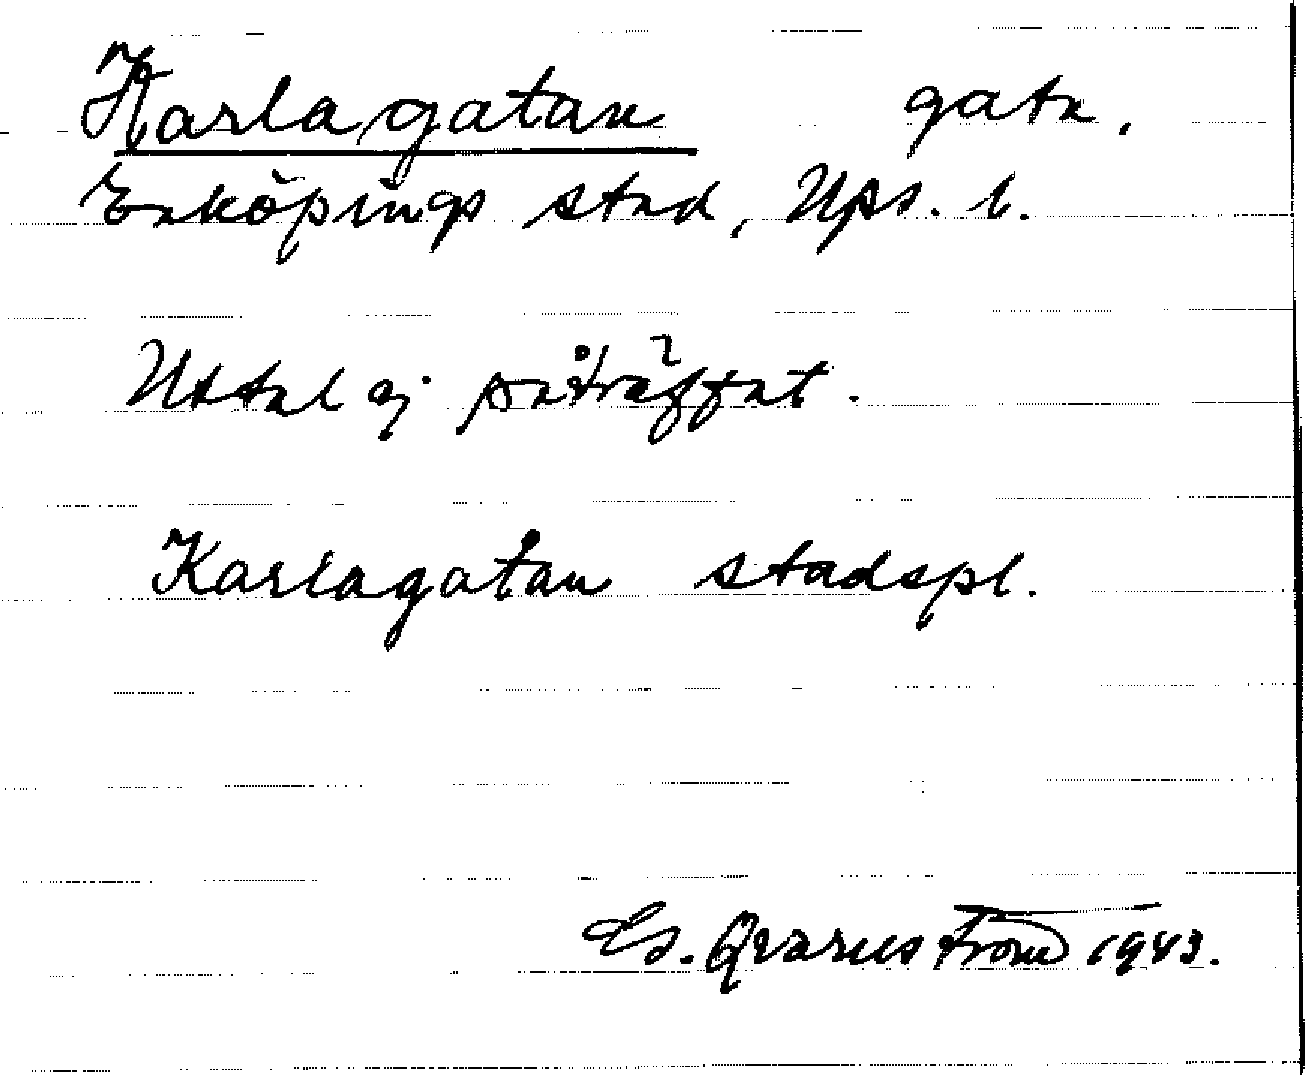 Karlagatan gata.
Enköpings stad, Ups. l.
Uttal ej påträffat.
Karlagatan stadspl.
Es. Qvarnström 1943.